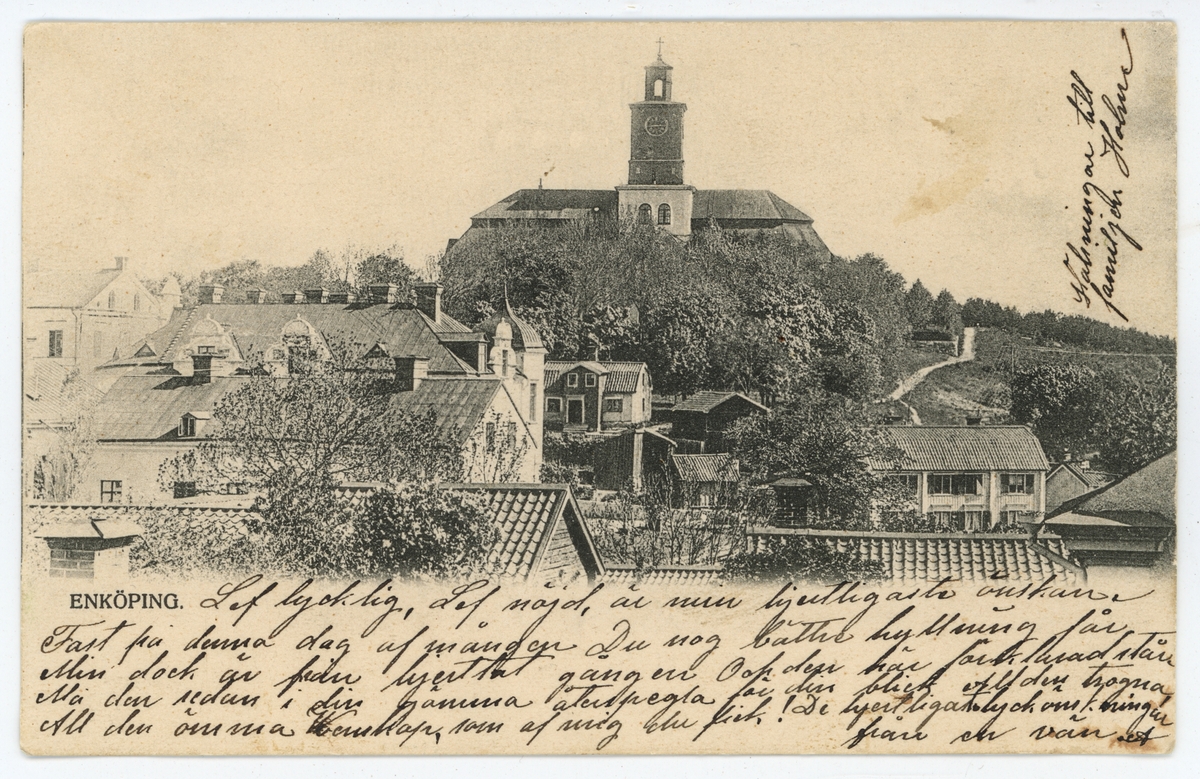 Hälsningar till
familjen Holm
ENKÖPING. Lef lycklig, Lef nöjd, är min hjertligaste önskan.
Fast på denna dag af mången Du nog bättre hyllning får
Min dock är från hjerttat gången Och den här för
Må den sedan i din gömma återspegla för din blick All den trogna
All den ömma Venskap, som af mig du fick! De hjertligaste lyckönskningar
från en vän